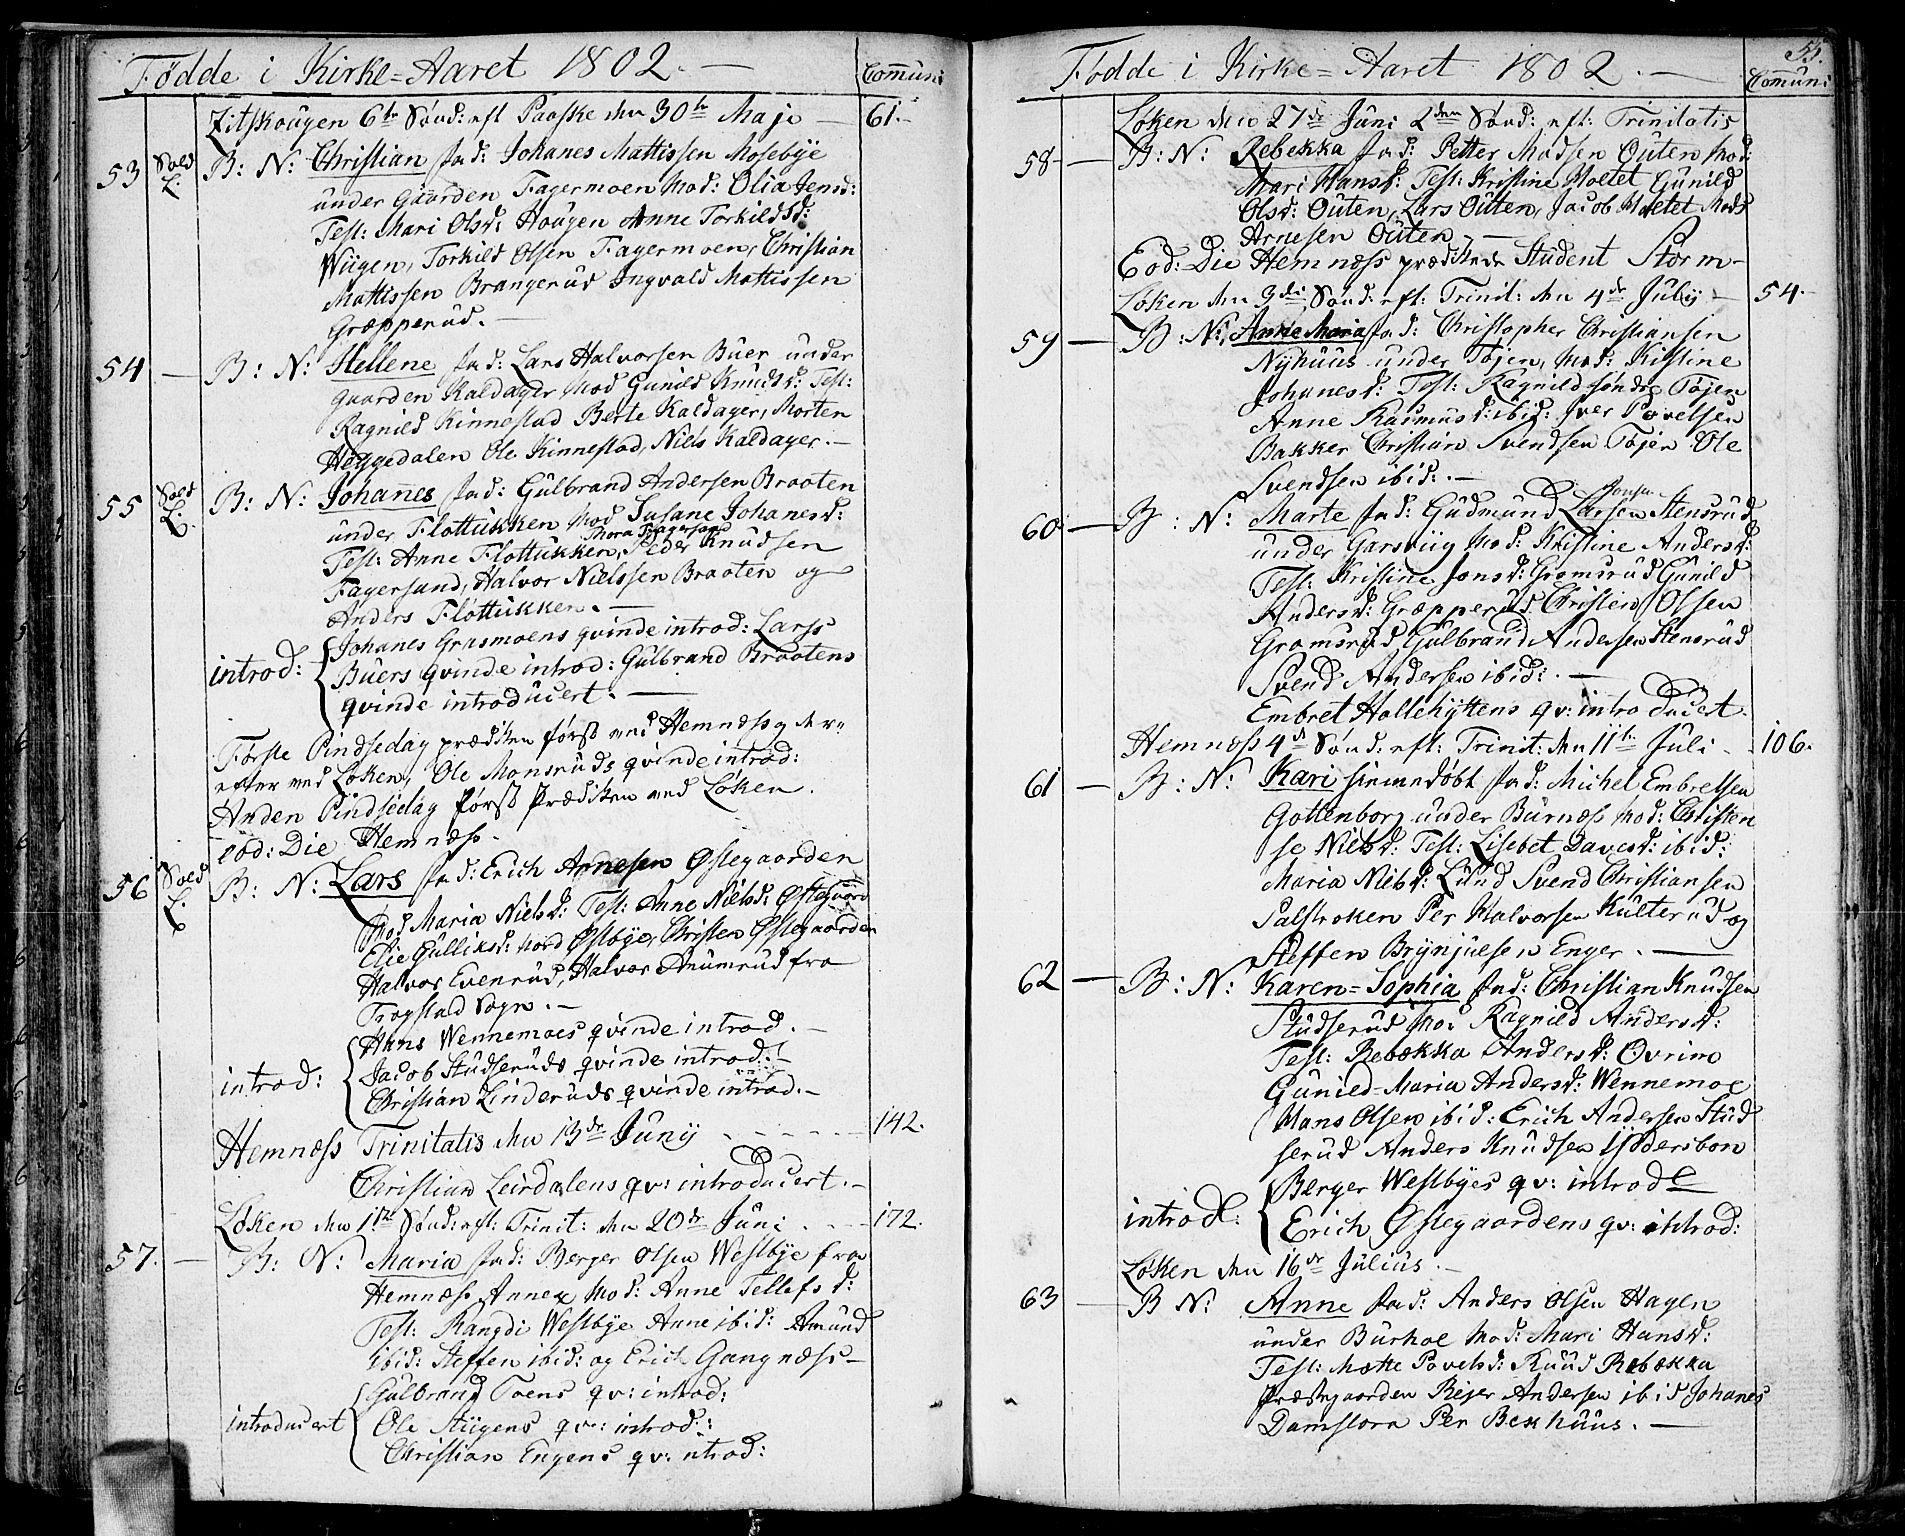 Fødde i Kirke-Aaret 1802. — Comuni
Zitskougen 6te Sønd: eft Paaske den 30te Maji — 61.-
53 Sold L. B: N: Christian fad: Johanes Mattissen Mosebye
under Gaarden Fagermoen Mod: Olia Jensd:
Test: Mari Olsd: Hougen Anne Torkildsd:
Wiigen, Torkild Olsen Fagermoen, Christian
Mattissen Brangerud Ingvald Mattissen
Græpperud. —
54 — B: N: Hellene fad: Lars Halvorsen Buer under
gaarden Kaldager Mod Gunild Knudsd: Test:
Ragnild Kinnestad Berte Kaldager, Morten
Heggedalen Ole Kinnestad, Niels Kaldager. —
55 Sold L. B: N: Johannes fad: Gulbrand Andersen Braaten
under Flottukken Mod Susane Johanesd:
Thora Fagersand
Test: Anne Flottukken, Peder Knudsen
Fagersund, Halvor Nielssen Braaten og
Anders Flottukken. —
introd: Johanes Grasmoens qvinde introd: Larss
Buers qvinde introd: Gulbrand Braatens
qvinde introducert. —
Første Pindsedag prædiken først ved Hemness og der-
efter ved Løken, Ole Monsruds qvinde introd:
Anden Pindsedag først Prædiken ved Løken.
eod: Die Hemness.
56 Sold L. B: N: Lars fad: Erich Arnesen Østegaarden
Mod Maria Nielsd: Test: Anne Nielsd: Østegaard
Elie Gulliksd: Nord Østbye, Christen Østegaarden
Halvor Evenrud, Halvor Anumrud fra
Trøgstad Sogn. —
Hans Wennemoes qvinde introd. —
introd: Jacob Studseruds qvinde introd. —
Christian Linderuds qvinde introd. —
Hemness Trinitatis den 13de Junij - - - 142.
Christian Leirdalens qv: introducert. —
Løken den 1ste Sønd: eft: Trinit: den 20de Juni - - 172.
57. — B: N: Maria fad: Berger Olsen Westbye fra
Hemness Annex Mod: Anne Tellefsd:
Test: Rangdi Westbye Anne ibid: Amund
ibid: Steffen ibid: og Erich Gangness —
Gulbrand Toens qv: introd:
introducert Ole Stiigens qv: introd:
Christian Engens qv: introd:
55.
Fødde i Kirke-Aaret 1802. — Comuni:
Løken den 27de Juni 2den Sønd: eft: Trinitatis
58 — B: N: Rebekka fad: Petter Madsen Outen Mod:
Mari Hansd: Test: Kristine Moetet Gunild
Olsd: Outen, Lars Outen, Jacob Moetet Mads
Arnesen Outen. —
Eod: Die Hemness prædikede Student Storm —
Løken den 3die Sønd: eft: Trinit: den 4de July — 54.-
59 — B: N: Anne Maria fad: Christopher Christiansen
Nyhuus under Tøien, Mod: Kistine
Johanesd: Test: Ragnild søndre Tøjen
Anne Rasmusd: ibid: Iver Povelsen
Bakker Christian Svendsen Tøjen Ole
Svendsen ibid: —
Jonsen
60 — B: N: Marte fad: Gudmund Larsen Stensrud
under Garsviig Mod: Kristine Andersd:
Test: Kristine Jonsd: Gromsrud Gunild
Andersd: Græpperud Christen Olsen
Gromsrud Gulbrand Andersen Stensrud
Svend Andersen ibid: —
Embret Hallehyttens qv: introducert.
Hemness 4de Sønd: eft: Trinit: den 11te Juli - 106.
61 — B: N: Kari hiemedøbt fad: Michel Embretsen
Gottenborg under Burness Mod: Christen
se Nielsd: Test: Lisebet Davesd: ibid:
Maria Nielsd: Lund Svend Christiansen
Salstroken Per Halvorsen Kulterud og
Steffen Brynjuelsen Enger. —
62 — B: N: Karen-Sophia fad: Christian Knudsen
Studserud Mod Ragnild Andersd:
Test: Rebækka Andersd: Ovrimo
Gunied-Maria Andersd: Wennemoe
Hans Olsen ibid: Erich Andersen Stud
serud Anders Knudsen
Berger Westbyes qv: introd
introd: Erich Østegaardens qv: introd:
Løken den 16de Julius. —
63 — B N: Anne fad: Anders Olsen Hagen
under Burhol Mod: Mari Hansd:
Test: Mætte Povelsd: Ruud Rebækka
Præstegaarden Rejer Andersen ibid Johanes
Damflora Per Bekhuus. —